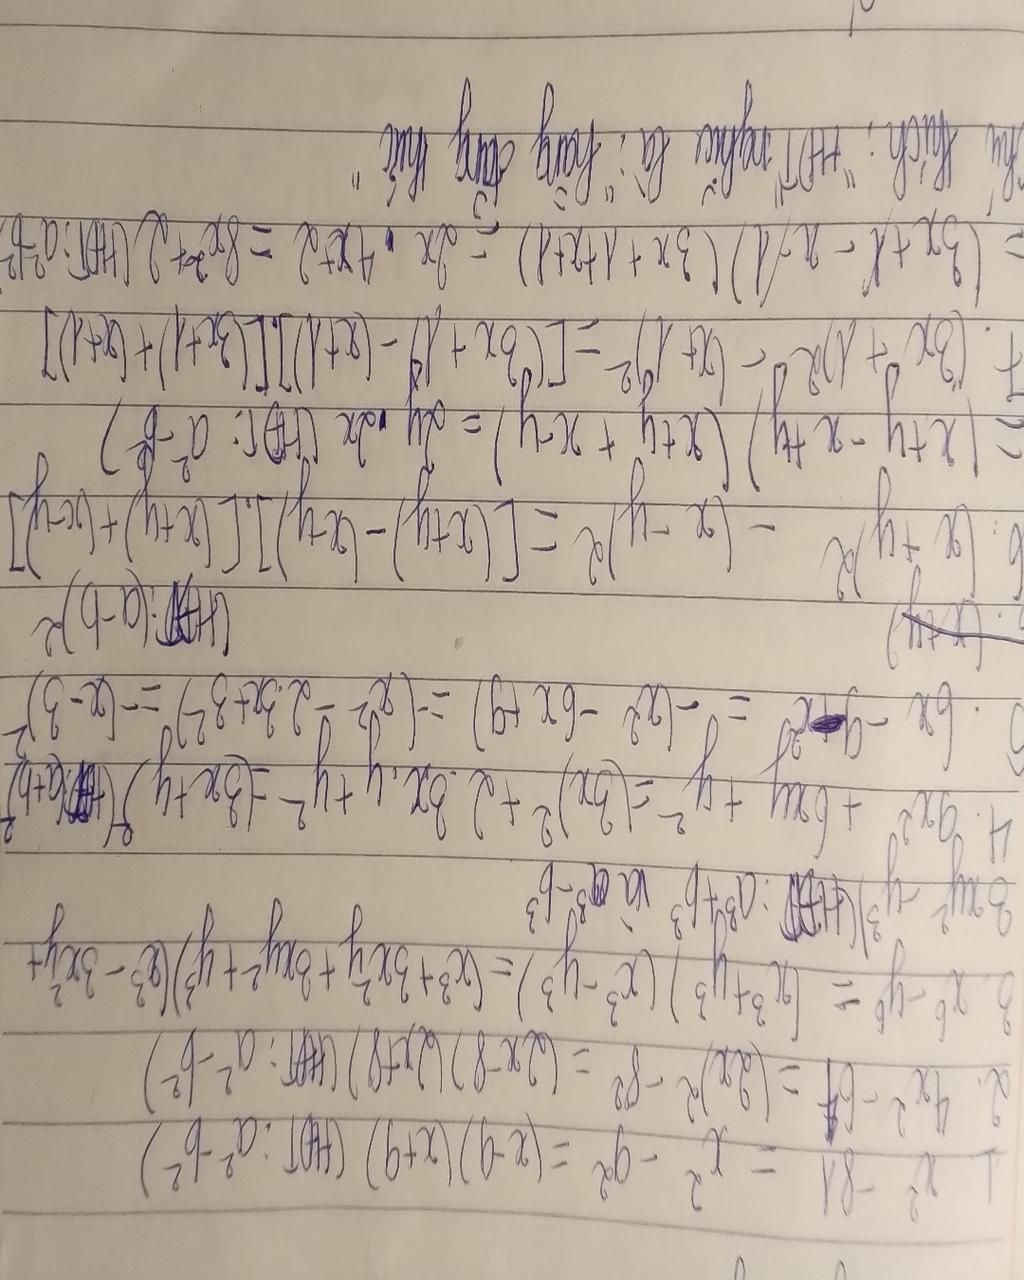 1. x² - 81 = x² - 9² = (x-9)(x+9) (HĐT: a²-b²)
2. 4x² - 64 = (2x)² - 8² = (2x-8)(2x+8) (HĐT: a²-b²)
3. x⁶-y⁶ = (x³+y³)(x³-y³) = (x³+3x²y+3xy²+y³)(x³-3x²y+
3xy²-y³) (HĐT: a³+b³ và a³-b³
4. 9x² + 6xy + y² = (3x)² + 2.3x.y + y² = (3x+y)² (HĐT: (a+b)²
5. 6x - 9 - x² = -(x² - 6x+9) = (-x² - 2.3x+3²) = -(x-3)²
(HĐT: (a-b)²
(x+y)
6. (x+y)² - (x-y)² = [(x+y)-(x-y)].[(x+y)+(x-y]
= (x+y-x+y)(x+y+x-y) = 2y.2x (HĐT: a²-b²)
7. (3x+1)² - (x+1)² = [(3x+1)-(x+1)].[(3x+1)+(x+1)]
= (3x+1-x-1)(3x+1+x+1) = 2x.4x+2 = 8x²+2 (HĐT: a²-b²
Chú thích: "HĐT" nghĩa là: "hằng đẳng thức"